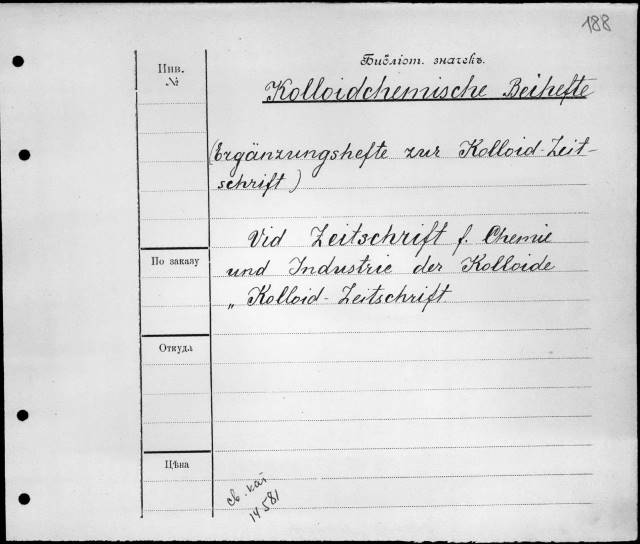 188
Библіот. значекъ.
Инв.
№
Kolloidchemische Beihefte
(Ergänzungshefte zur Kolloid-Zeit-
schrift)
Vid Zeitschrift f. Chemie
По заказу
und Industrie der Kolloide
„ Kolloid-Zeitschrift
Откуда
Цѣна
св. кат
14581